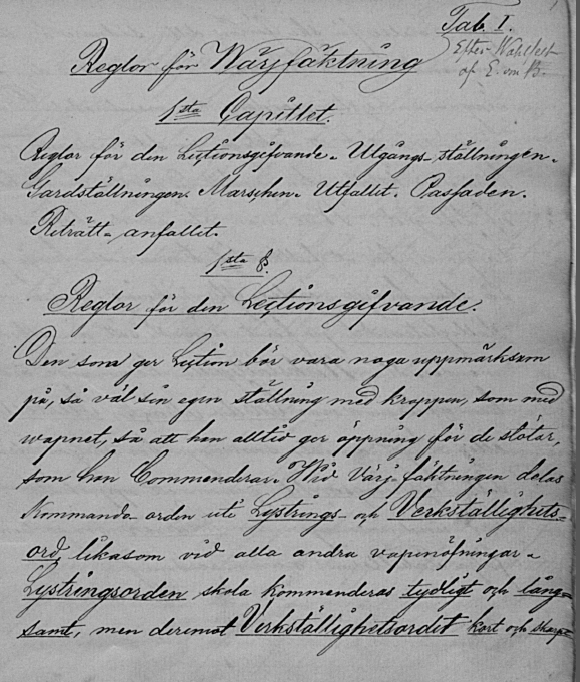 Tab. I.
Efter
af E. von
Reglor för Wärjfäktning
1sta Capittlet.
Reglor för den Lectionsgifvande. Utgångs-ställningen.
Gardställningen. Marschen. Utfallet. Passaden.
Reträtt-anfallet.
1sta §.
Reglor för den Lectionsgifvande.
Den som ger Lection bör vara noga uppmärksam
på, så väl sin egen ställning med kroppen, som med
wapnet, så att han alltid ger öppning för de stötar,
som han Commenderar. Wid Värj-fäktningen delas
Kommando-orden uti Lystrings- och Verkställighets-
ord, likasom vid alla andra vapenöfningar.
Lystringsorden skola kommenderas tydligt och lång-
samt, men deremot Verkställighetsordet kort och skarpt